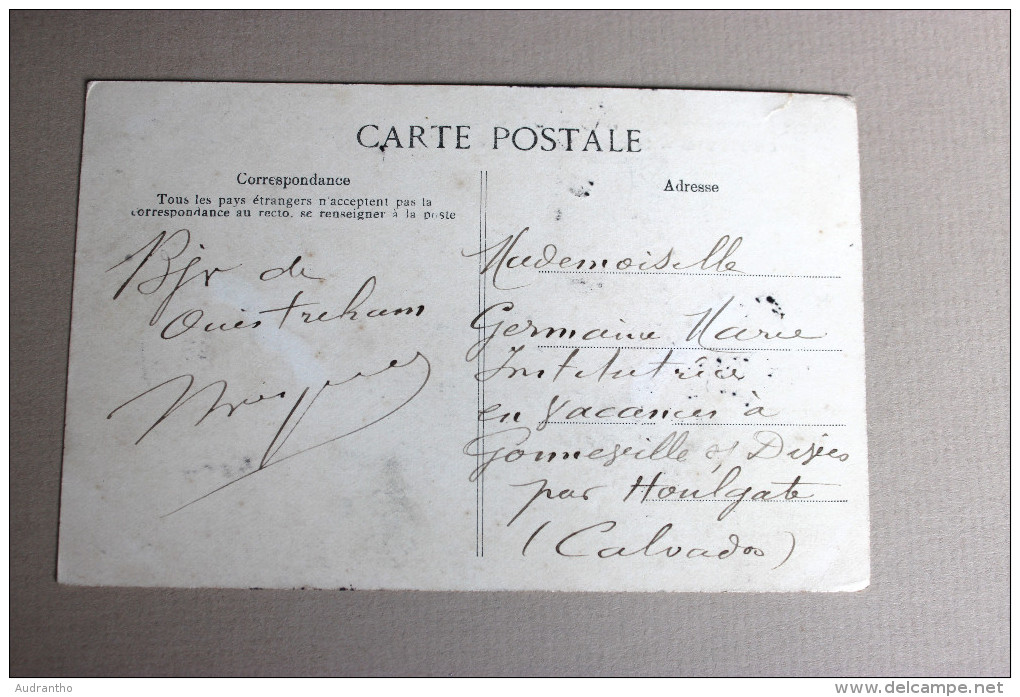 CARTE POSTALE
Correspondance
Tous les pays étrangers n'acceptent pas la
correspondance au recto, se renseigner à la poste
Bjr de
Ouistreham
Adresse
Mademoiselle
Germaine Marie
Institutrice
en vacances à
Gonneville s/ Dives
par Houlgate
(Calvados)
Audrantho
www.delcampe.net